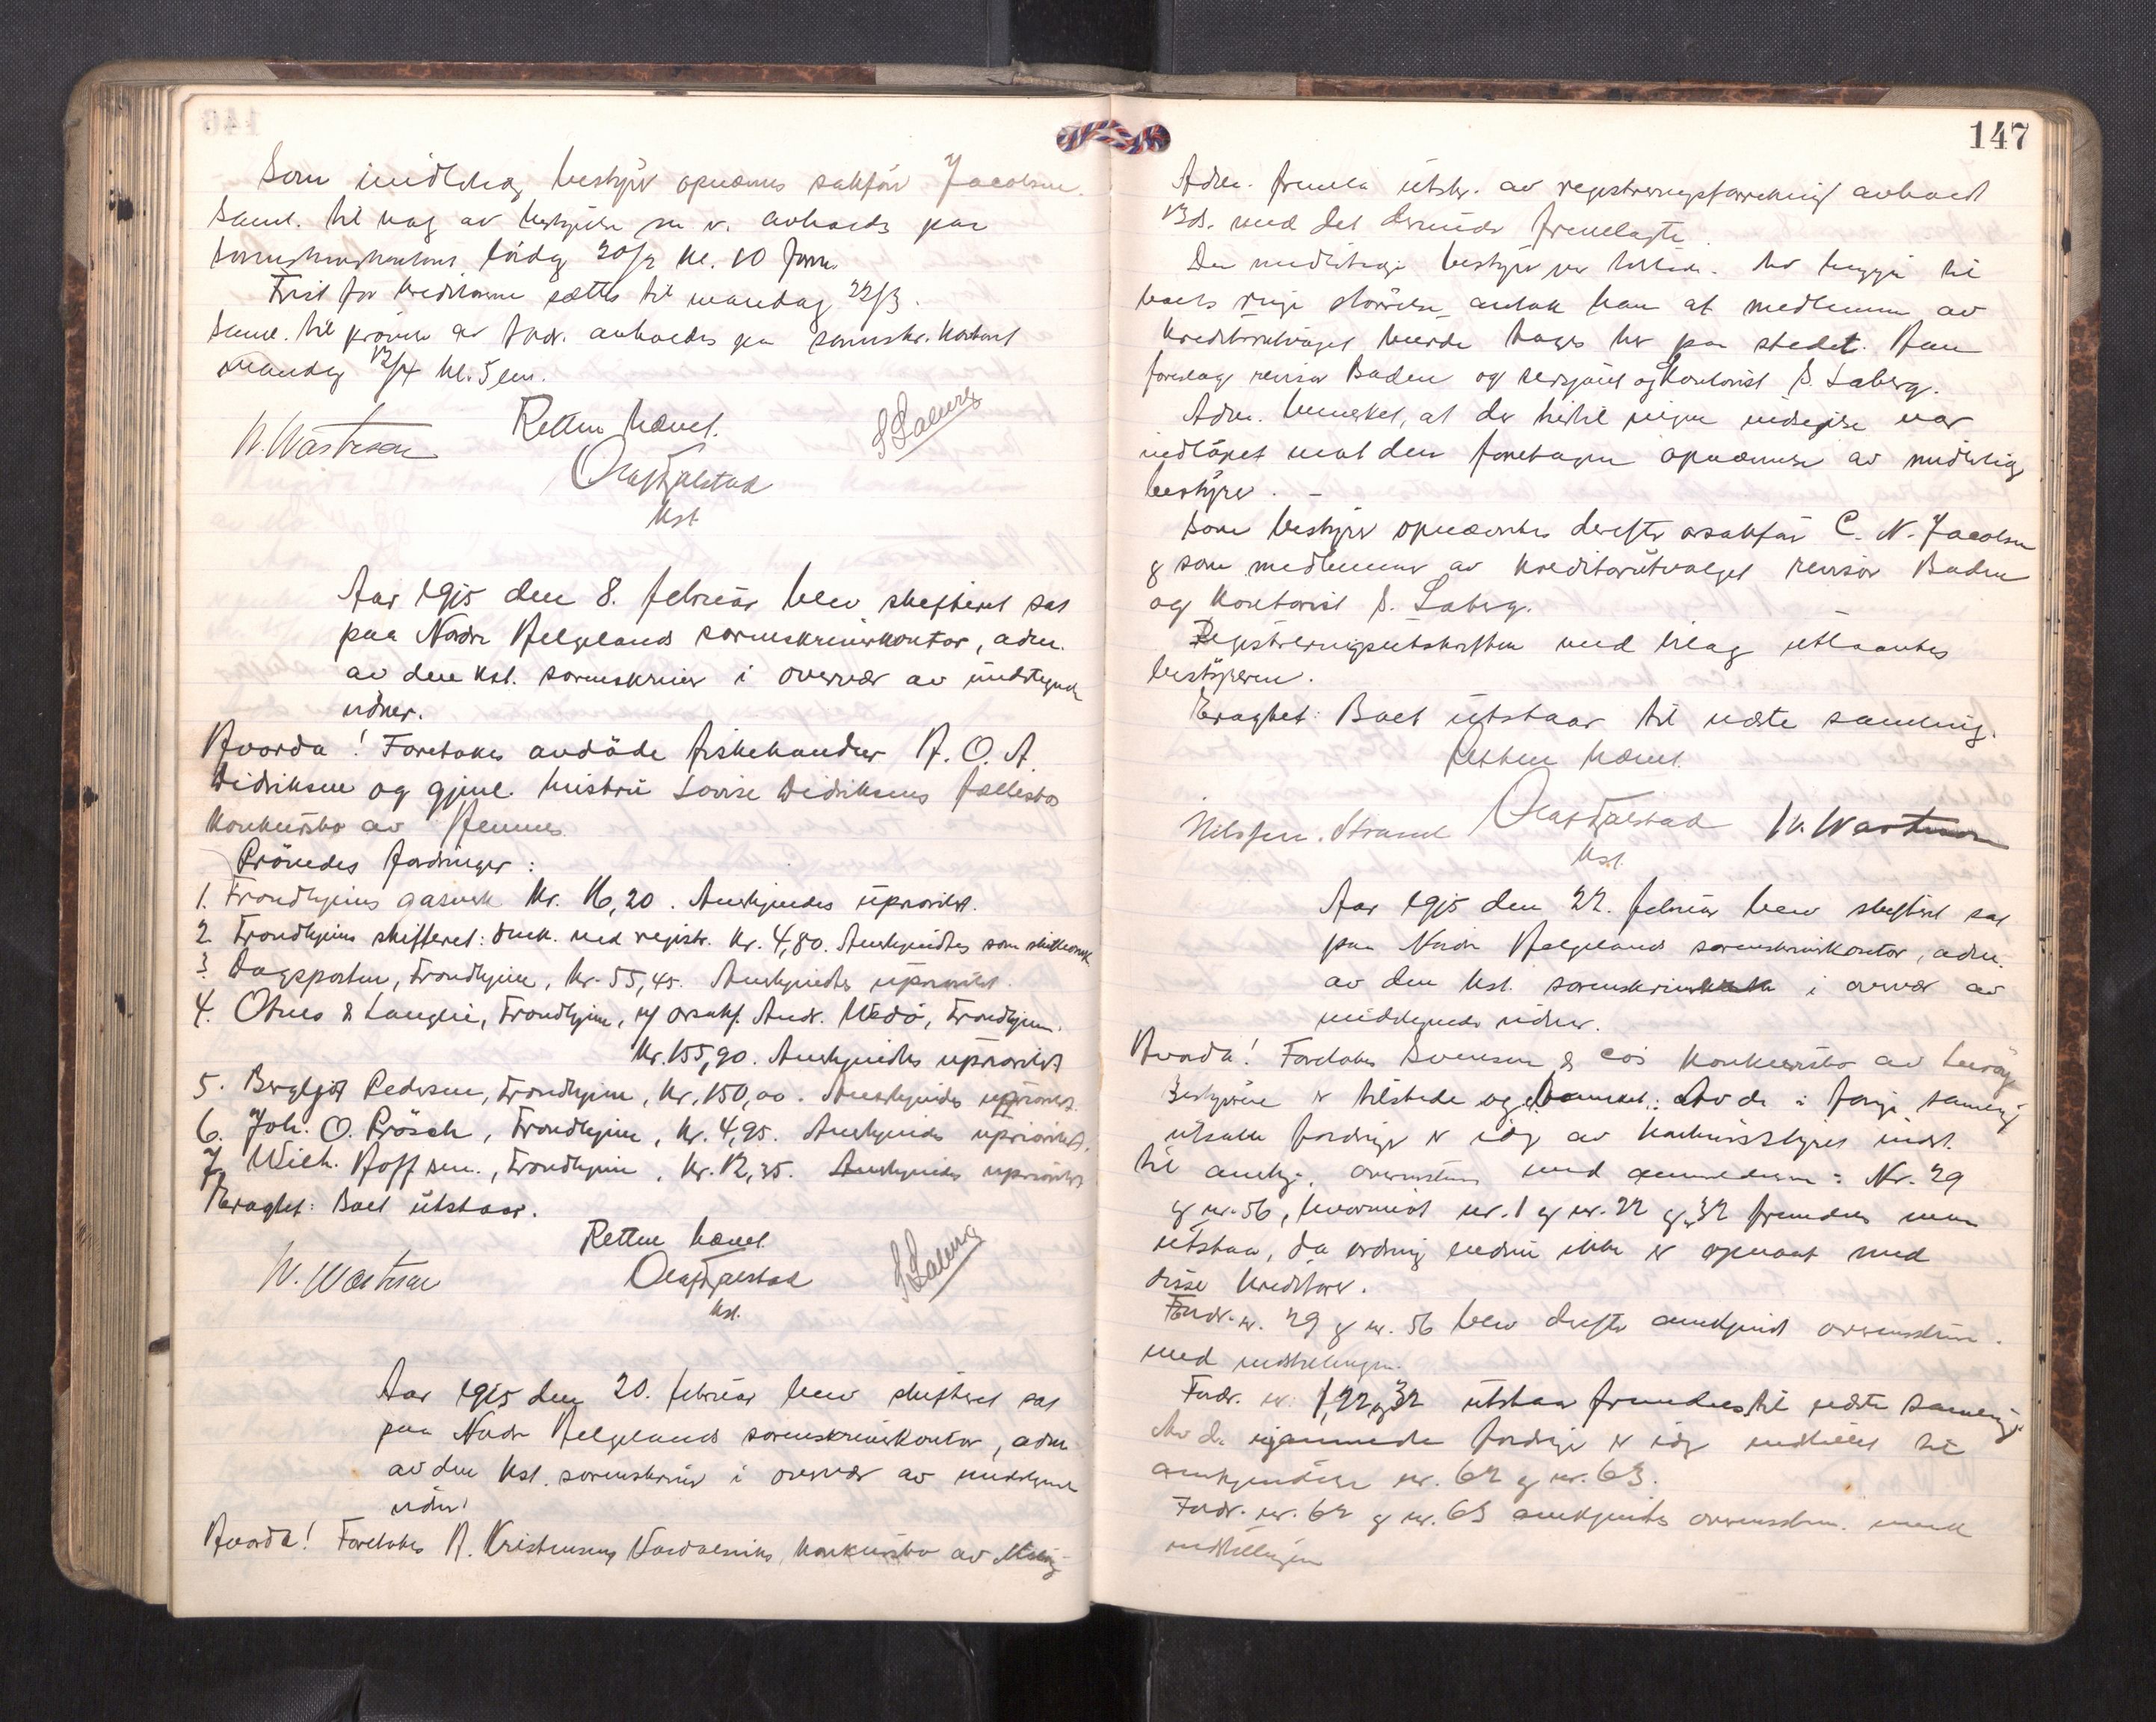 Som midlertidig bestyrer opnævnes sakfører Jacobsen.
Saml. til valg av bestyrelse m. v. avholdes paa
sorenskriverkontoret lørdag 20/2 kl. 10 form.
Frist for kreditorerne sættes til mandag 22/3.
Saml. til prøvelse av fordr. avholdes paa sorenskr. kontoret
mandag 12/4 kl. 5 em.
Retten hævet.
W. Wastesen Olaf Fjalstad S Saberg
kst.
Aar 1915 den 8. februar blev skifteret sat
paa Nordre Helgelands sorenskriverkontor, adm.
av den kst. sorenskriver i overvær av undertegnede
vidner.
Hvorda! Foretokes avdøde fiskehandler A. O. A.
Didriksen og gjenl. hustru Lovise Didriksens fællesbo
konkursbo av Hemnes
Prøvedes fordringer:
1. Trondhjems gasverk kr. 16,20. Anerkjendes uprioritert.
2. Trondhjems skifteret: omk. ved registr. kr. 4,80. Anerkjendtes som skifteomk.
3. Dagsposten, Trondhjem, kr. 55,45. Anerkjendtes uprioritert.
4. Otnes & Langlie, Trondhjem, v/ orsakf. Andr. Wedø, Trondhjem.
kr. 155,90. Anerkjendtes uprioritert
5. Bergljot Pedersen, Trondhjem, kr. 150,00. Anerkjendes uprioritert.
6. Joh. O. Prösch, Trondhjem, kr. 4,95. Anerkjendes uprioritert.
7. Wilh. Hoff sen., Trondhjem, kr. 12,35. Anerkjendes uprioritert
Eragtet: Boet utstaar.
Retten hævet.
W. Wastesen Olaf Fjalstad S Saberg
kst.
Aar 1915 den 20. februar blev skifteret sat
paa Nordre Helgelands sorenskriverkontor, adm.
av den kst. sorenskriver i overvær av undertegnede
vidner.
Hvorda! Foretokes A. Kristensens konkursbo av
147
Adm. fremla utskr. av registreringsforretning avholdt
med det derunder fremlagte.
Den midlertidige bestyrer var tilstede. Av hensyn til
boets ringe størrelse antok han at medlemmer av
kreditorutvalget burde tages her paa stedet. Han
foreslog revisor Baden og kontorist S. Saberg.
Adm. bemerket, at der hittil ingen indsigelse var
indløpet mot den foretagne opnævnelse av midlertidig
bestyrer. –
Som bestyrer opnævntes derefter orsakfør C. N. Jacobsen
og som medlemmer av kreditorutvalget revisor Baden
og kontorist S. Saberg.
Registreringsutskriften med bilag utlaantes
bestyreren.
Eragtet: Boet utstaar til næste samling.
Retten hævet.
Nilssen Strand Olaf Fjalstad W. Wastesen
kst.
Aar 1915 den 22. februar blev skifteret sat
paa Nordre Helgelands sorenskriverkontor, adm.
av den kst. sorenskriver i overvær av
undertegnede vidner.
Hvorda! Foretokes Svensen & cos konkursbo av
Bestyreren er tilstede og bemerket: Av de i forrige samling
utsatte fordringer er idag av konkursstyret indst.
til anerkj. overensstem. med anmeldelsen: Nr. 29
og nr. 56, hvorimot nr. 1 og nr. 22 og 32 fremdeles maa
utstaa, da ordning endnu ikke er opnaat med
disse kreditorer.
Fordr. nr. 29 og nr. 56 blev derefter anerkjendt overensstem.
med indstillingen.
Fordr. nr. 1, 22 og 32 utstaar fremdeles til næste samling.
Av de fordringer er idag indstillet til
anerkjendelse nr. 62 og nr. 63.
Fordr. nr. 62 og nr. 63 anerkjendtes overensstem. med
indstillingen